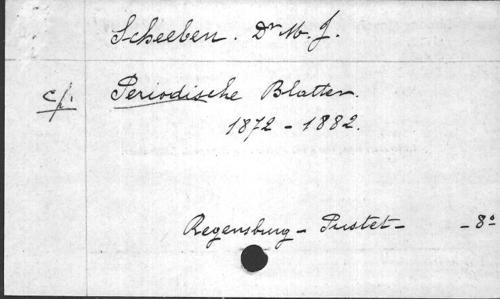 Scheeben. Dr M. J.
c/. Periodische Blatter.
1872 - 1882.
Regensburg - Pustet - - 8°